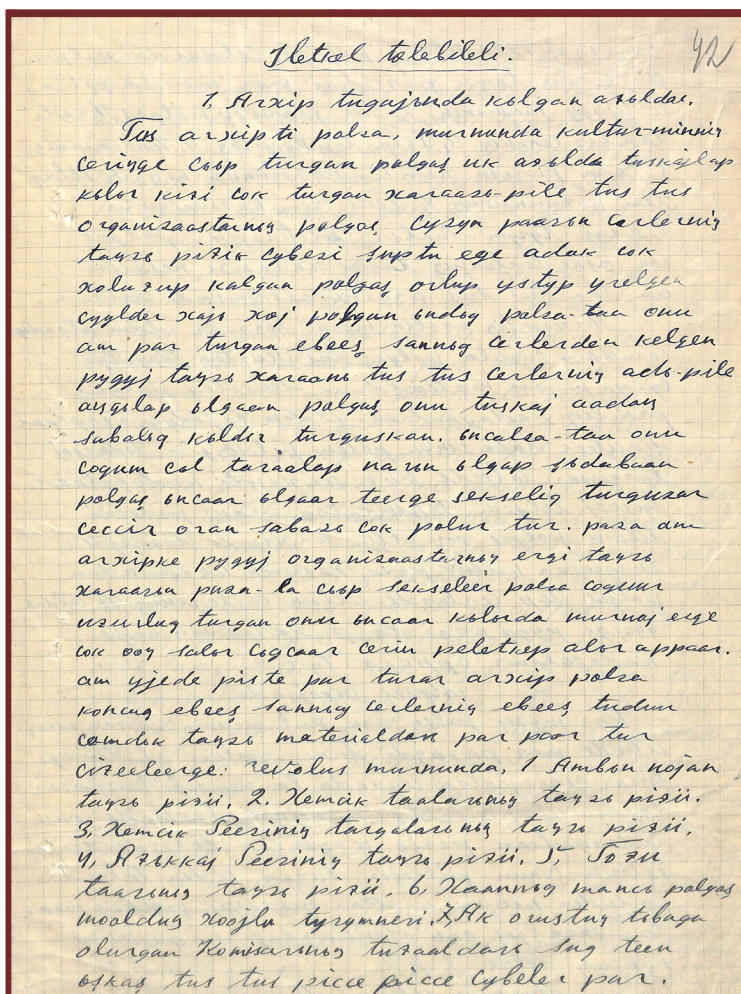 Iletkel tɵlebileli.
42
1, Arxip tugajьnda kьlgan aƶьldar.
Tus arxipti polza, murnunda kultur-minniꞑ
ceringe cььp turgan polgaş uk aƶьlda tuskajlap
kьlьr kiƶi cok turgan xaraazь-pile tus tus
organizaastarnьꞑ polgaş cyzyn paazьn cerlerniꞑ
taꞑzь piƶik cybezi şuptu ege adak cok
xoluƶup kalgan polgaş orlup ystyp yrelgen
cyylder xaja xoj polgan ьndьg polza-taa onu
am par turgan ebeeş sannьg cerlerden kelgen
pygyj taꞑzь xaraanь tus tus cerlerniꞑ adь-pile
aꞑgьlap ьlgaan polgaş onu tuskaj aadaꞑ
sabalьg kьldьr turguskan. ьncalza-taa onu
cogum col taraalap narьn ьlgap şьdabaan
polgaş ьncaar ьlgaar teerge sekseliꞑ turguzar
ceccir oran sabazь cok polur tur. paza am
arxipke pygyj organizaastarnьꞑ ergi taꞑzь
xaraazьn paza-la cььp sekseleer polza cogum
uzurlug turgan onu ьncaar kьlьrda murnaj erge
cok ooꞑ salьr cьgcaar cerin peletkep alьr appaar.
am yjede piste par turar arxip polza
koncug ebeeş sannьg cerlerniꞑ ebeeş tudum
comdok taꞑzь materialdarь par poor tur
ciƶeeleerge: revolus murnunda, 1 Ambьn nojan
taꞑzь piƶii, 2. Xemcik taalarьnьꞑ taꞑzь piƶii.
3, Xemcik Peezinin targalarьnьꞑ taꞑzь piƶii,
4, Aƶьkkaj Peeziniꞑ taꞑzь piƶii. 5, Toƶu
taarьnьꞑ taꞑzь piƶii. 6, Xaannьꞑ mancь polgaş
mooldug xoojlu tyrymneri. 7, Ak orustuꞑ tьbaga
olurgan Komisarьnьꞑ tuƶaaldarь şug teen
ьşkaş tus tus picce picce cybeler par.